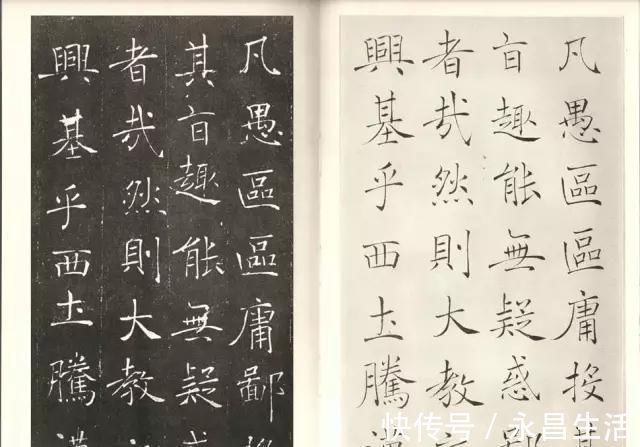 凡愚區區庸投其
旨趣能無疑惑
者哉然則大教
興基乎西土騰漢
凡愚區區庸鄙投
其旨趣能無疑惑
者哉然則大教之
興基乎西土騰漢
快传号 / 永昌生活